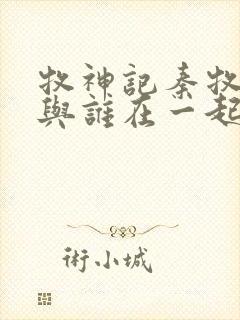 牧神記秦牧
與誰在一起
術小城